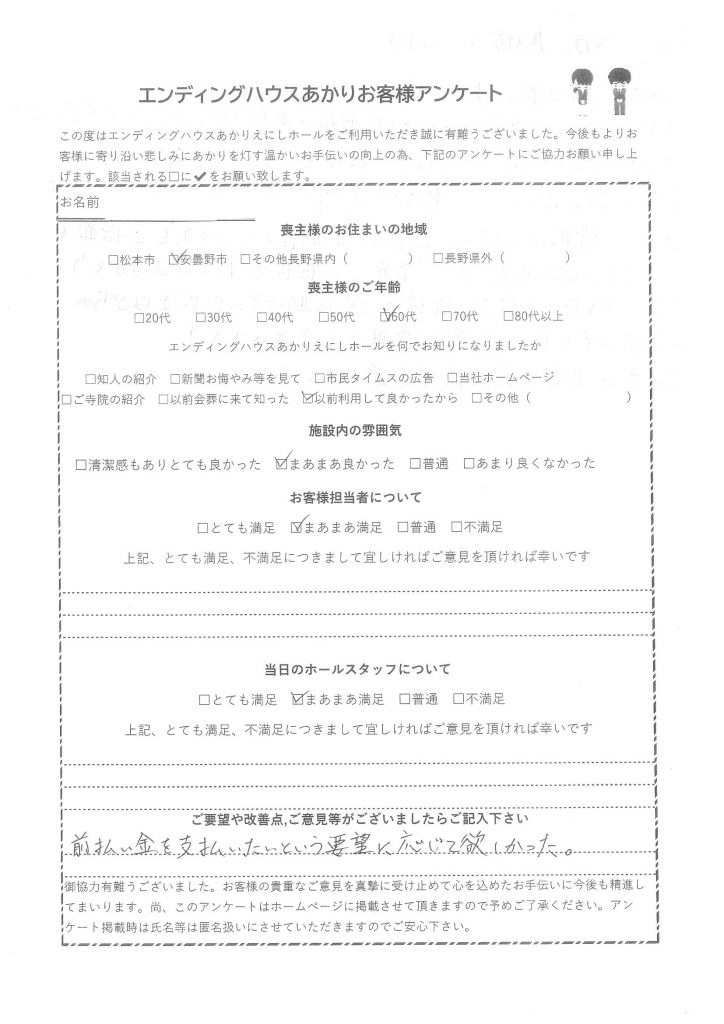 エンディングハウスあかりお客様アンケート
この度はエンディングハウスあかりえにしホールをご利用いただき誠に有難うございました。今後もよりお
客様に寄り沿い悲しみにあかりを灯す温かいお手伝いの向上の為、下記のアンケートにご協力お願い申し上
げます。該当される□に✔をお願い致します。
お名前
喪主様のお住まいの地域
□松本市 ☑安曇野市 □その他長野県内（ ） □長野県外（ ）
喪主様のご年齢
□20代 □30代 □40代 □50代 ☑60代 □70代 □80代以上
エンディングハウスあかりえにしホールを何でお知りになりましたか
□知人の紹介 □新聞お悔やみ等を見て □市民タイムスの広告 □当社ホームページ
□ご寺院の紹介 □以前会葬に来て知った ☑以前利用して良かったから □その他（ ）
施設内の雰囲気
□清潔感もありとても良かった ☑まあまあ良かった □普通 □あまり良くなかった
お客様担当者について
□とても満足 ☑まあまあ満足 □普通 □不満足
上記、とても満足、不満足につきまして宜しければご意見を頂ければ幸いです
当日のホールスタッフについて
□とても満足 ☑まあまあ満足 □普通 □不満足
上記、とても満足、不満足につきまして宜しければご意見を頂ければ幸いです
ご要望や改善点,ご意見等がございましたらご記入下さい
前払い金を支払いたいという要望に応じて欲しかった。
御協力有難うございました。お客様の貴重なご意見を真摯に受け止めて心を込めたお手伝いに今後も精進し
てまいります。尚、このアンケートはホームページに掲載させて頂きますので予めご了承ください。アン
ケート掲載時は氏名等は匿名扱いにさせていただきますのでご安心下さい。